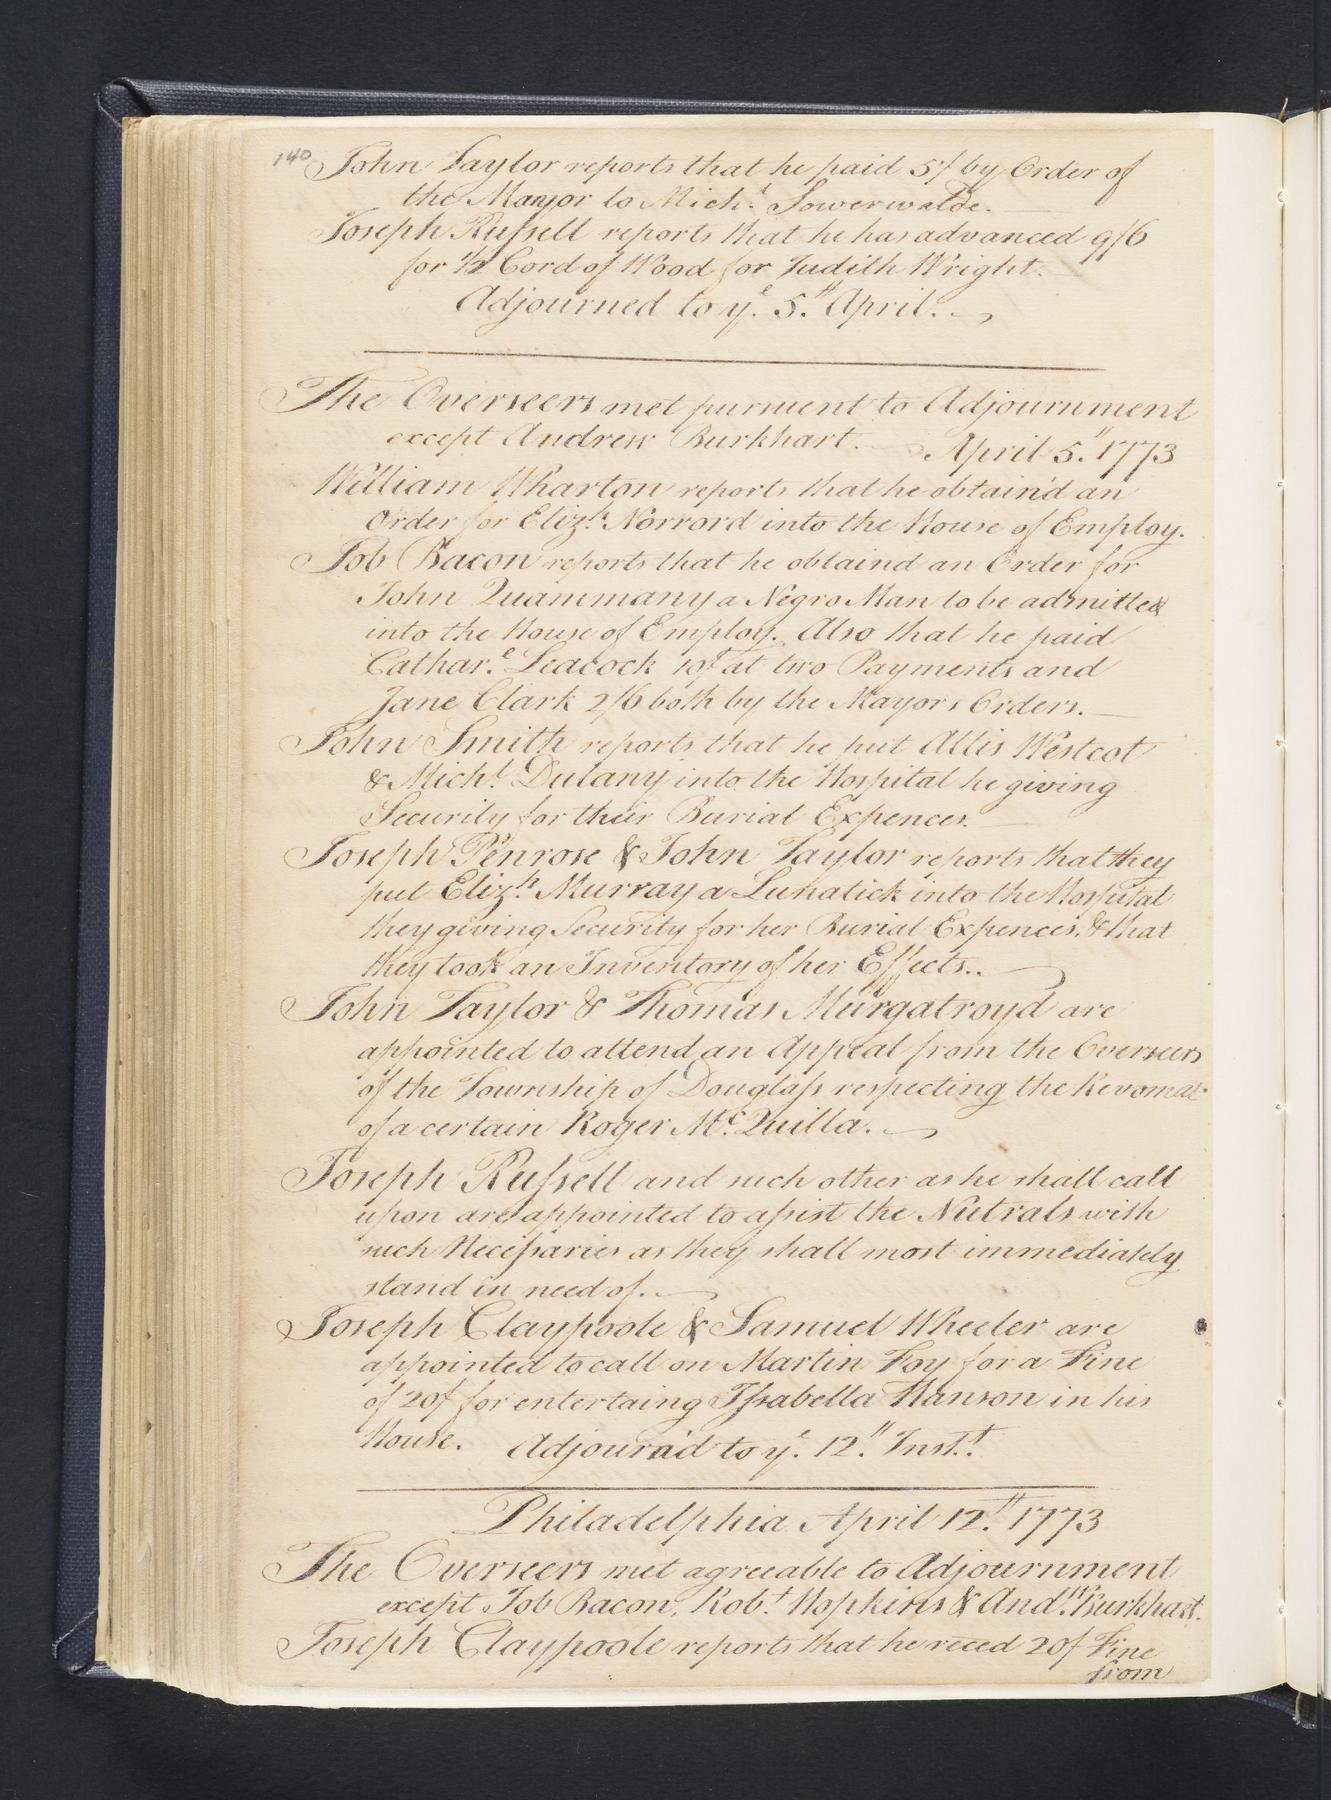 140
John Taylor reports that he paid 5/ by Order of
the Mayor to Mich.l Sowerwalde.
Joseph Russell reports that he has advanced 9/6
for 1/2 Cord of Wood for Judith Wright.
Adjourned to y.e 5.th April.
The Overseers met pursuent to Adjournment
except Andrew Burkhart. April 5.th 1773
William Wharton reports that he obtain'd an
Order for Eliz.h Norrord into the House of Employ.
Job Bacon reports that he obtaind an Order for
John Quammany a Negro Man to be admitted
into the House of Employ. Also that he paid
Cathar.e Leacock 10/ at two Payments and
Jane Clark 2/6 both by the Mayors Orders.
John Smith reports that he put Allis Westcot
& Mich.l Dulany into the Hospital he giving
Security for their Burial Expences.
Joseph Penrose & John Taylor reports that they
put Eliz.h Murray a Lunatick into the Hospital
they giving Security for her Burial Expences, & that
they took an Inventory of her Effects..
John Taylor & Thomas Murgatroyd are
appointed to attend an Appeal from the Overseers
of the Township of Douglass respecting the Revomal
of a certain Roger Mc.Quilla.
Joseph Russell and such other as he shall call
upon are appointed to assist the Nutrals with
such Necessaries as they shall most immediately
stand in need of.
Joseph Claypoole & Samuel Wheeler are
appointed to call on Martin Foy for a Fine
of 20/ for entertaing Issabella Hanson in his
House. Adjourn'd to y.e 12.th Inst.t
Philadelphia April 12.th 1773
The Overseers met agreeable to Adjournment
except Job Bacon, Rob.t Hopkins & And.w Burkhart.
Joseph Claypoole reports that he reced 20/ Fine
from